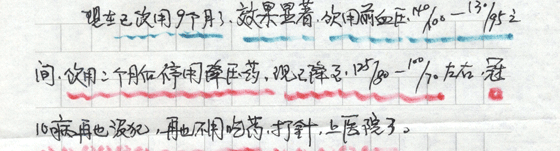 现在已饮用9个月了、效果显著、饮用前血压、140/100—130/95之
间、饮用二个月后停用降压药、现已降至、125/80—100/70左右、冠
心病再也没犯，再也不用吃药、打针，上医院了。